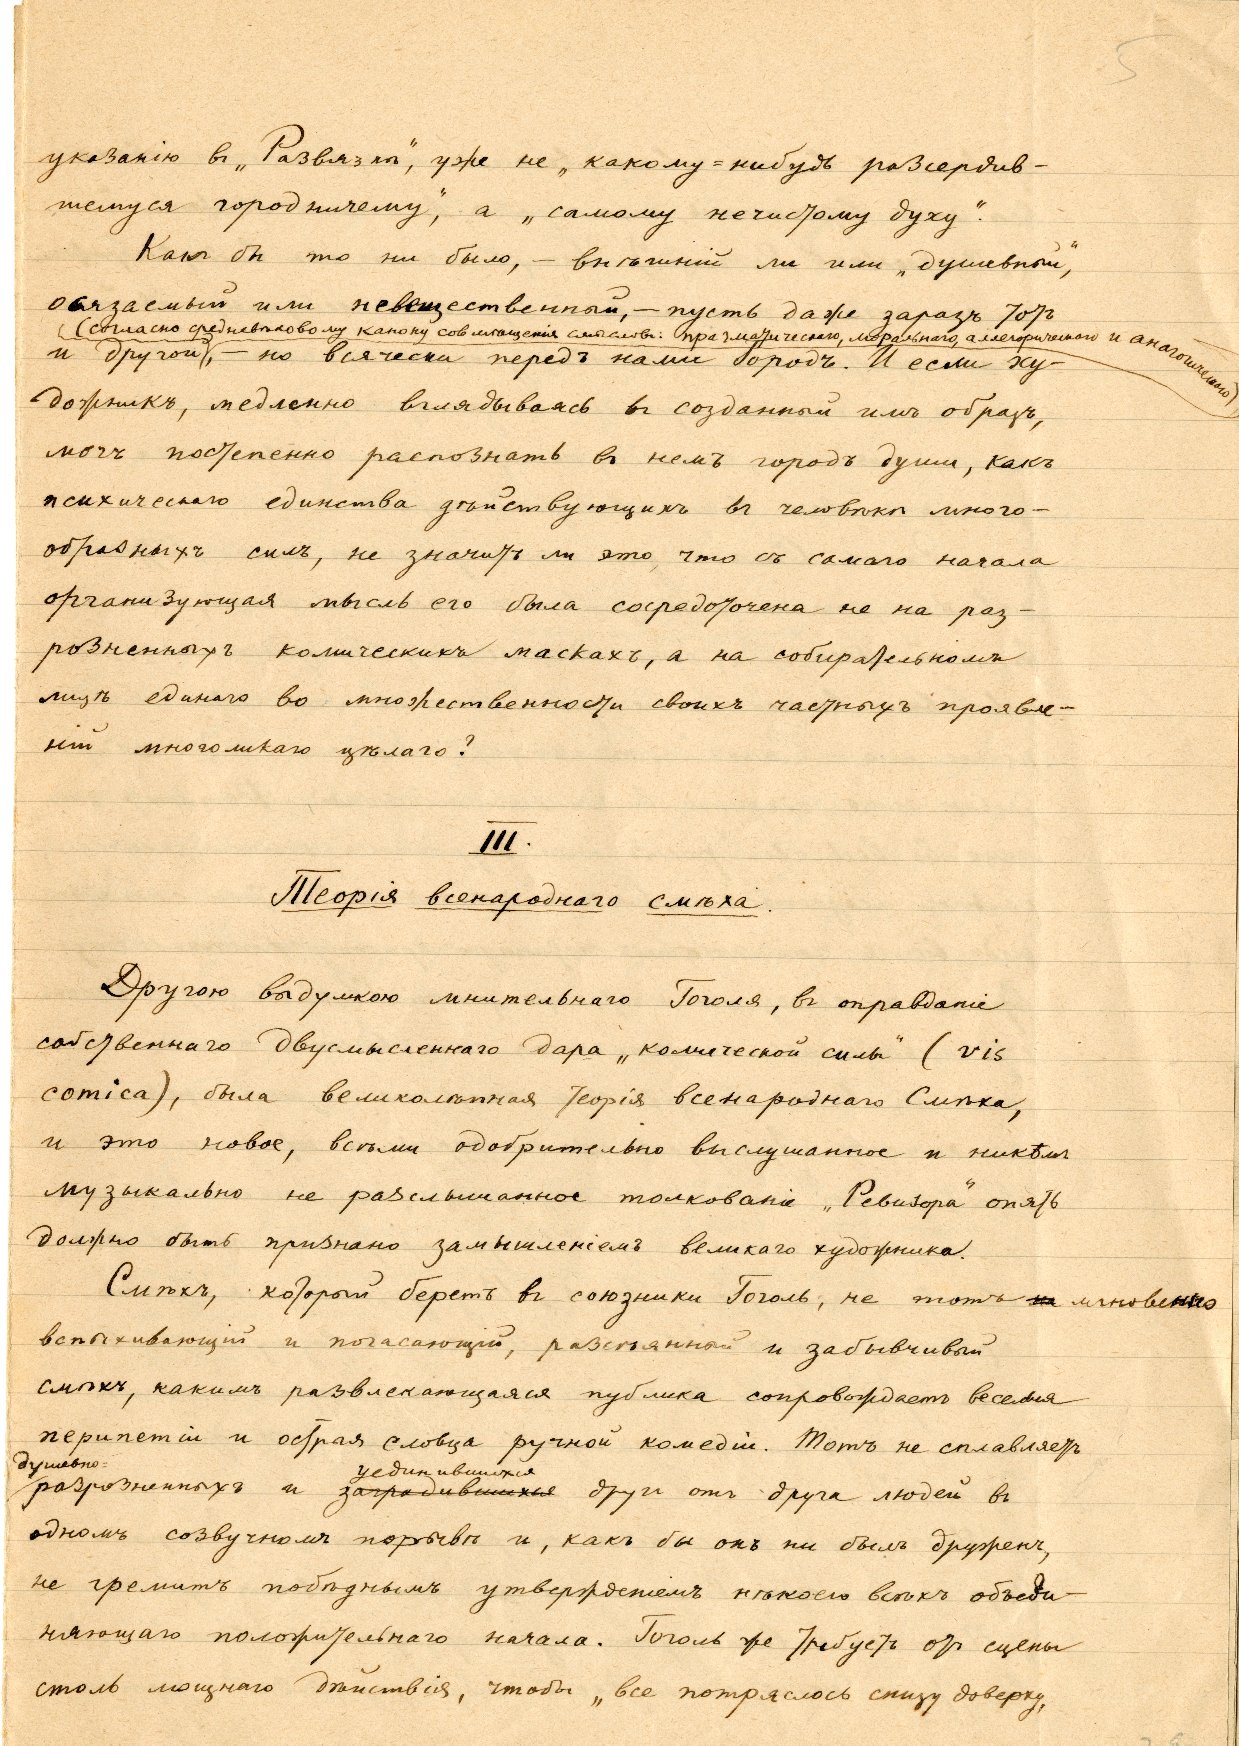 5
указанію въ „Развязкѣ“, уже не „какому=нибудь разсердив-
шемуся городничему“, а „самому нечистому духу“.
Какъ бы то ни было, — внѣшній ли или „душевный“,
осязаемый или невещественный, — пусть даже заразъ тотъ
(согласно средневѣковому канону совмѣщенія смысловъ: прагматическаго, моральнаго, аллегорическаго и анагогическаго)
и другой, — но всячески передъ нами Городъ. И если ху-
дожникъ, медленно вглядываясь въ созданный имъ образъ,
могъ постепенно распознать въ немъ городъ души, какъ
психическаго единства дѣйствующихъ въ человѣкѣ много-
образныхъ силъ, не значитъ ли это, что съ самаго начала
организующая мысль его была сосредоточена не на раз-
розненныхъ комическихъ маскахъ, а на собирательномъ
лицѣ единаго во множественности своихъ частныхъ проявле-
ній многоликаго цѣлаго?
III.
Теорія всенароднаго смѣха.
Другою выдумкою мнительнаго Гоголя, въ оправданіе
собственнаго двусмысленнаго дара „комической силы“ (vis
comica), была великолѣпная теорія всенароднаго Смѣха,
и это новое, всѣми одобрительно выслушанное и никѣмъ
музыкально не разслышанное толкованіе „Ревизора“ опять
должно быть признано замышленіемъ великаго художника.
Смѣхъ, который беретъ въ союзники Гоголь, не тотъ мгновенно
вспыхивающій и погасающій, разсѣянный и забывчивый
смѣхъ, какимъ развлекающаяся публика сопровождаетъ веселыя
перипетіи и острая словца ручной комедіи. Тотъ не сплавляетъ
душевно= уединившихся
разрозненныхъ и заградившихся другъ отъ друга людей въ
одномъ созвучномъ порывѣ и, какъ бы онъ ни былъ друженъ,
не гремитъ побѣднымъ утвержденіемъ нѣкоего всѣхъ объеди-
няющаго положительнаго начала. Гоголь же требуетъ отъ сцены
столь мощнаго дѣйствія, чтобы „все потряслось снизу доверху,